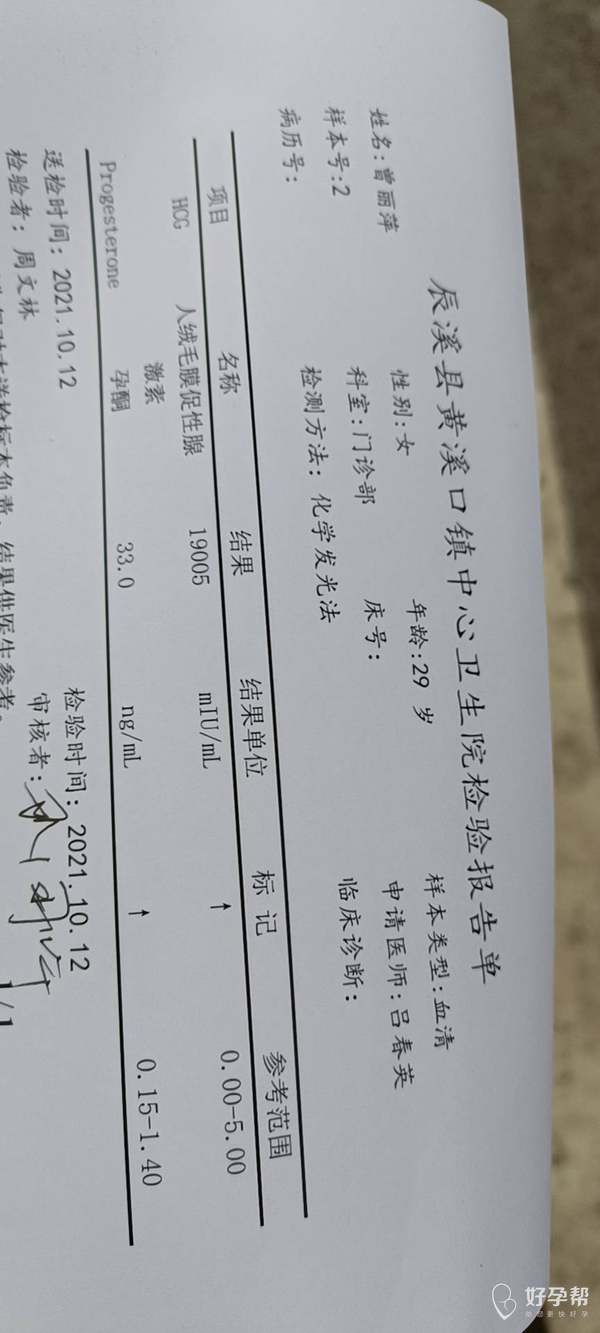 辰溪县黄溪口镇中心卫生院检验报告单
姓名:曾丽萍 性别:女 年龄:29 岁 样本类型:血清
样本号:2 科室:门诊部 床号: 申请医师:吕春英
病历号: 检测方法: 化学发光法 临床诊断:
项目 名称 结果 结果单位 标 记 参考范围
HCG 人绒毛膜促性腺激素 19005 mIU/mL ↑ 0.00-5.00
Progesterone 孕酮 33.0 ng/mL ↑ 0.15-1.40
送检时间: 2021.10.12 检验时间: 2021.10.12
检验者: 周文林 审核者:
送检标本负责, 结果供医生参考。
1/1
好孕帮
帮您更快好孕